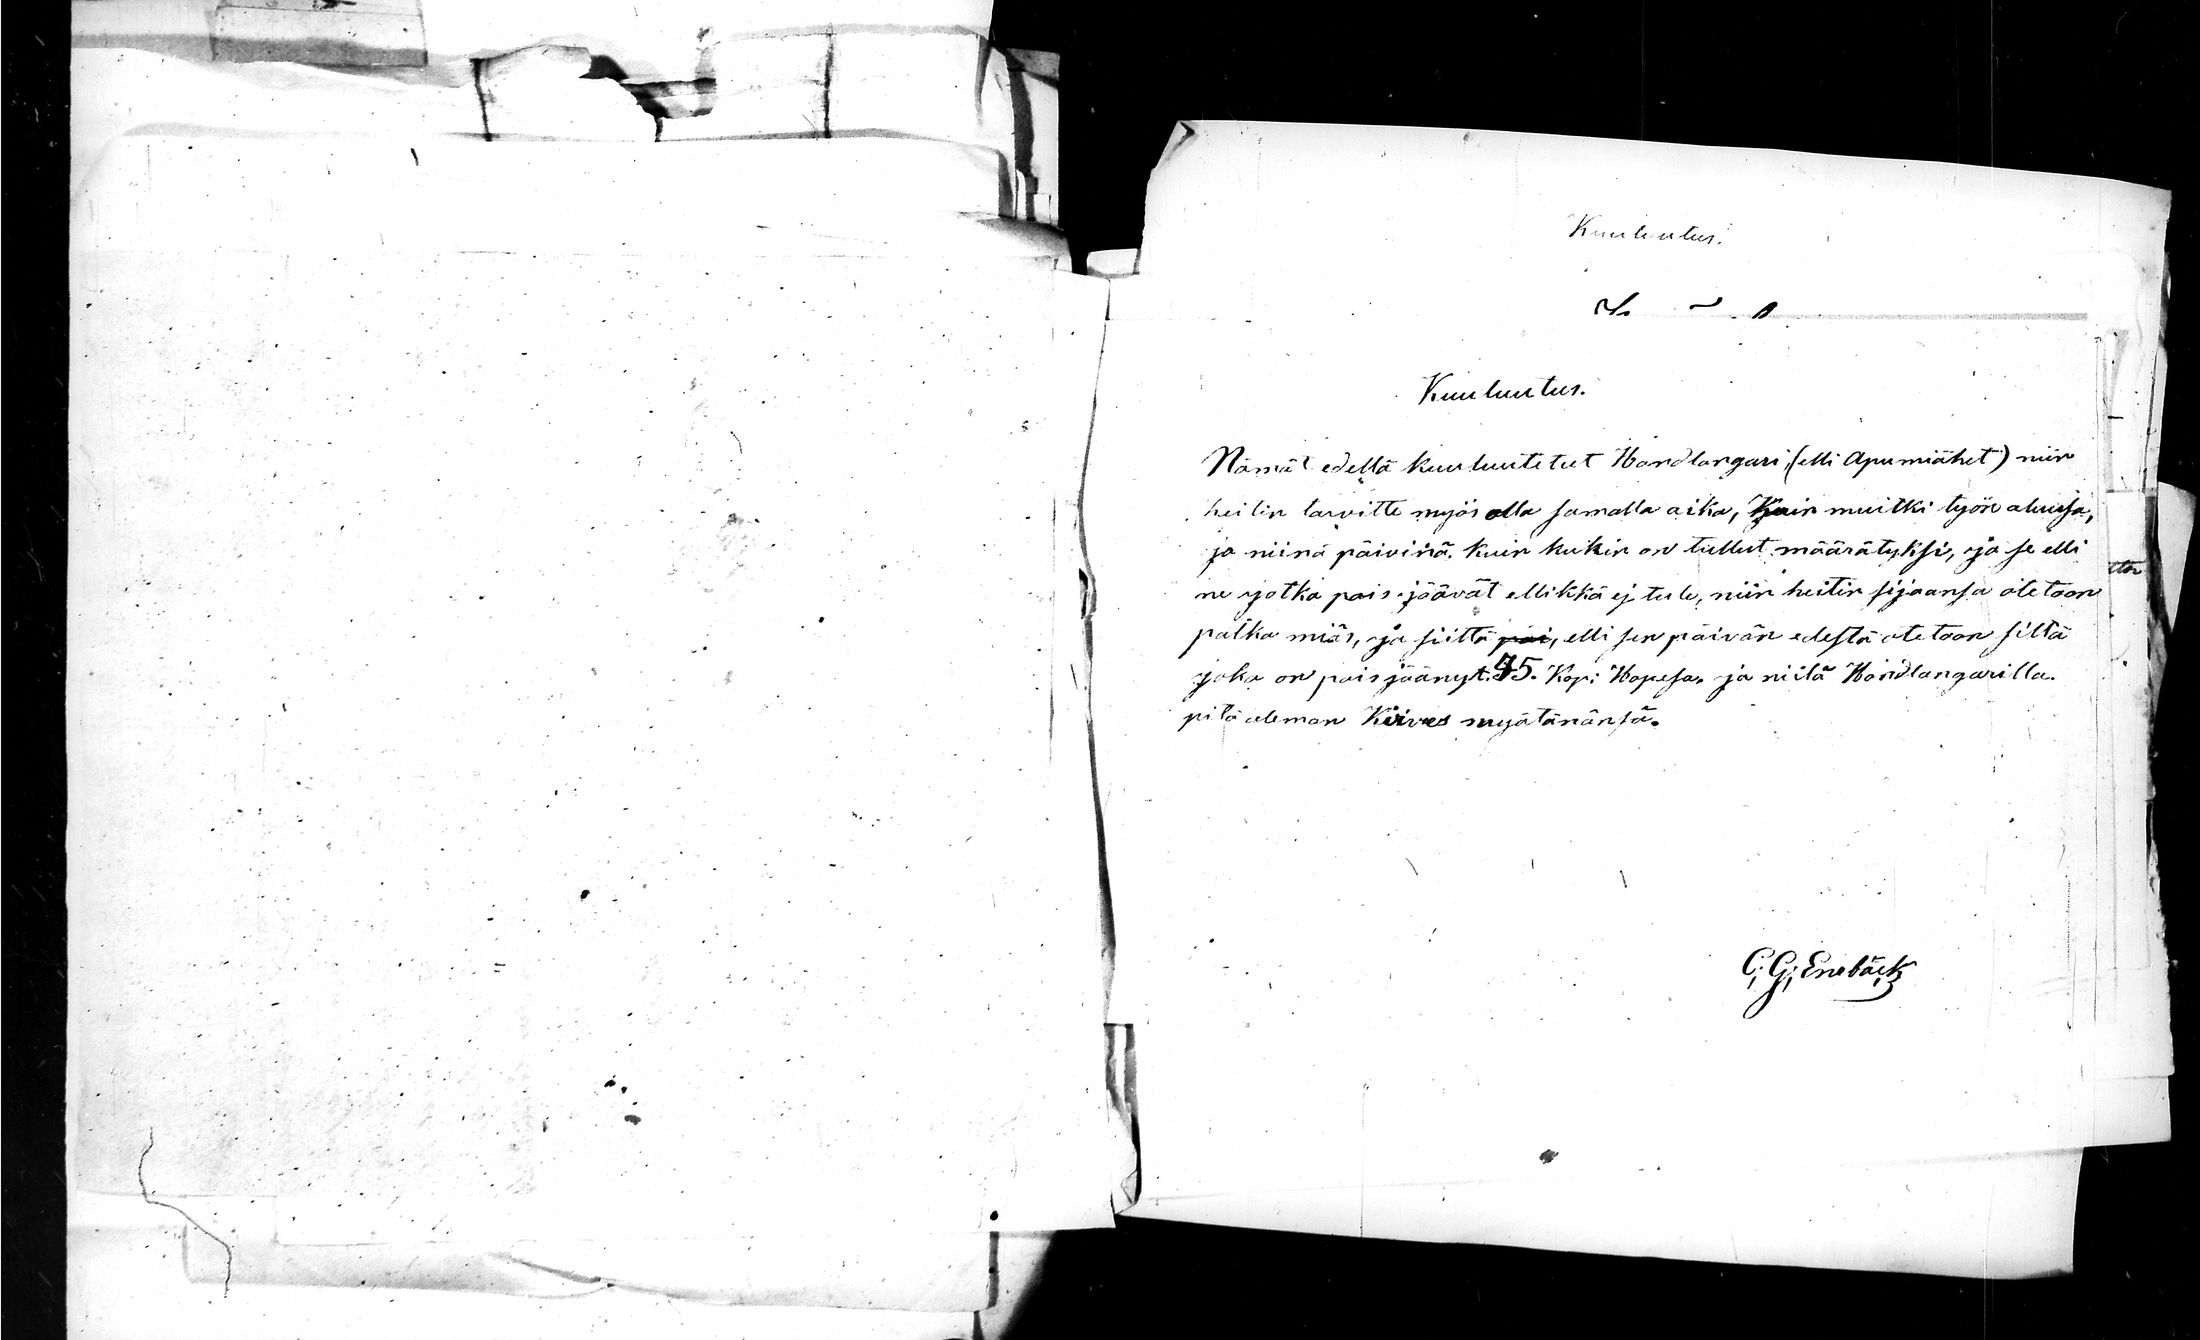 Kuulutus.
Kuuluutus.
Nämät edellä kuuluutetut Handlangari, (elli Apumiähet) niin
heitin tarvitte myös olla samalla aika, Kuin muitki työn alusa,
ja niinä päivinä. kuin kukin on tullut määrätyksi, ja se elli
ne jotka pois jäävät ellikkä ej tule, niin heitin sijaansa otetaan
palka miäs, ja siittä päi, elli sen päivän edestä otetaan siltä
joka on poisjäänyt. 45. Kop: Hopesa. ja niilä Handlangarilla.
pitä oleman Kirves myätänänsä.
C; G; Enebäck